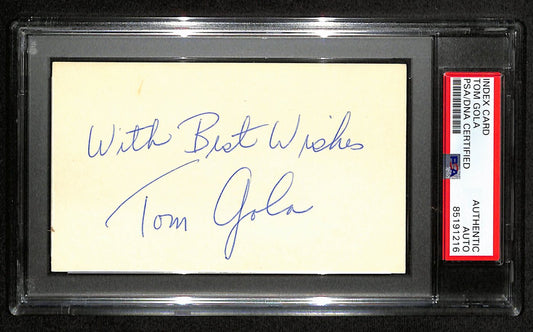 With Best Wishes
Tom Gola
INDEX CARD
TOM GOLA
PSA/DNA CERTIFIED
PSA
AUTHENTIC
AUTO
85191216